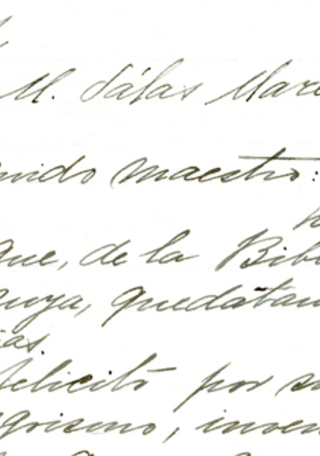 M. Salas Mar
uido maestro:
que, de la Bib
uya, quedaban
ias
felicito por su
grismo, inven